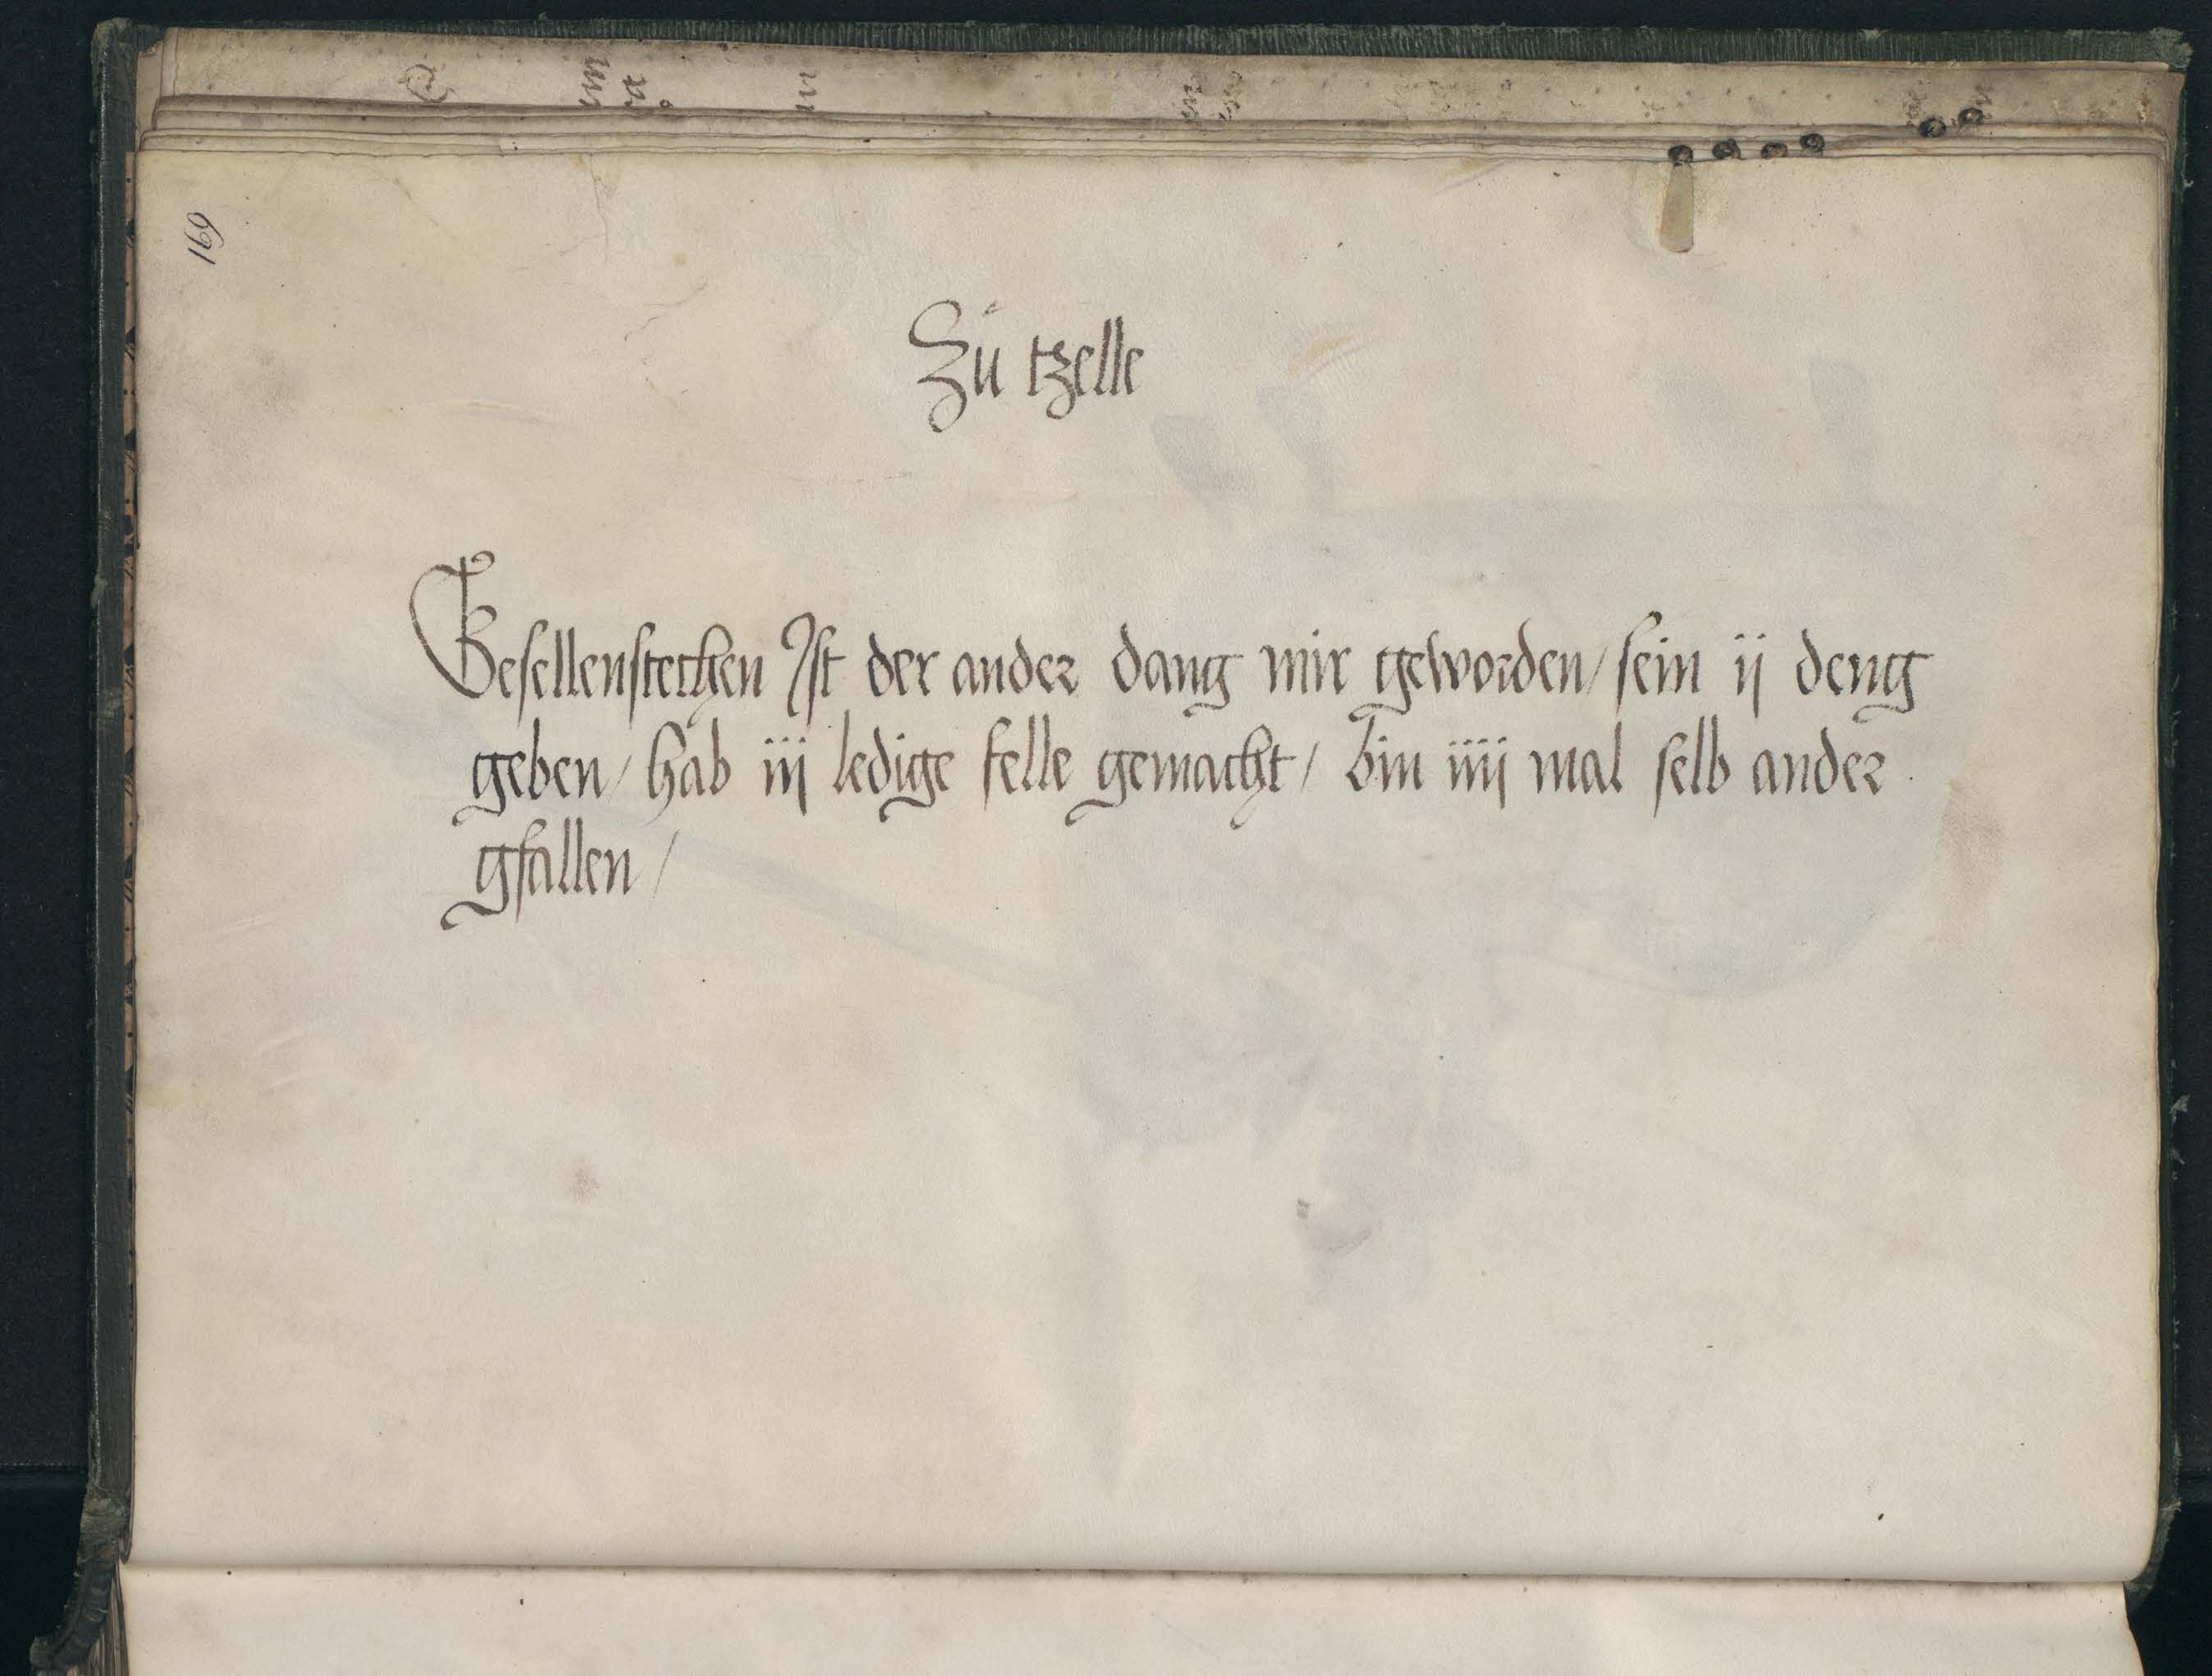 169
Zů tzelle
Gesellenstechen Ist der ander dang mir geworden / sein ij deng
geben / hab iij ledige felle gemacht / bin iiij mal selb ander
gfallen /